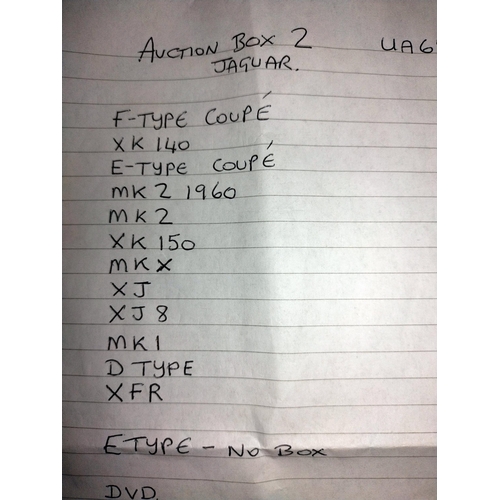 AUCTION BOX 2 UA6
JAGUAR.
F-TYPE COUPÉ
XK 140
E-TYPE COUPÉ
MK 2 1960
MK 2
XK 150
MK X
XJ
XJ 8
MK 1
D TYPE
XFR
E TYPE - NO BOX
DVD